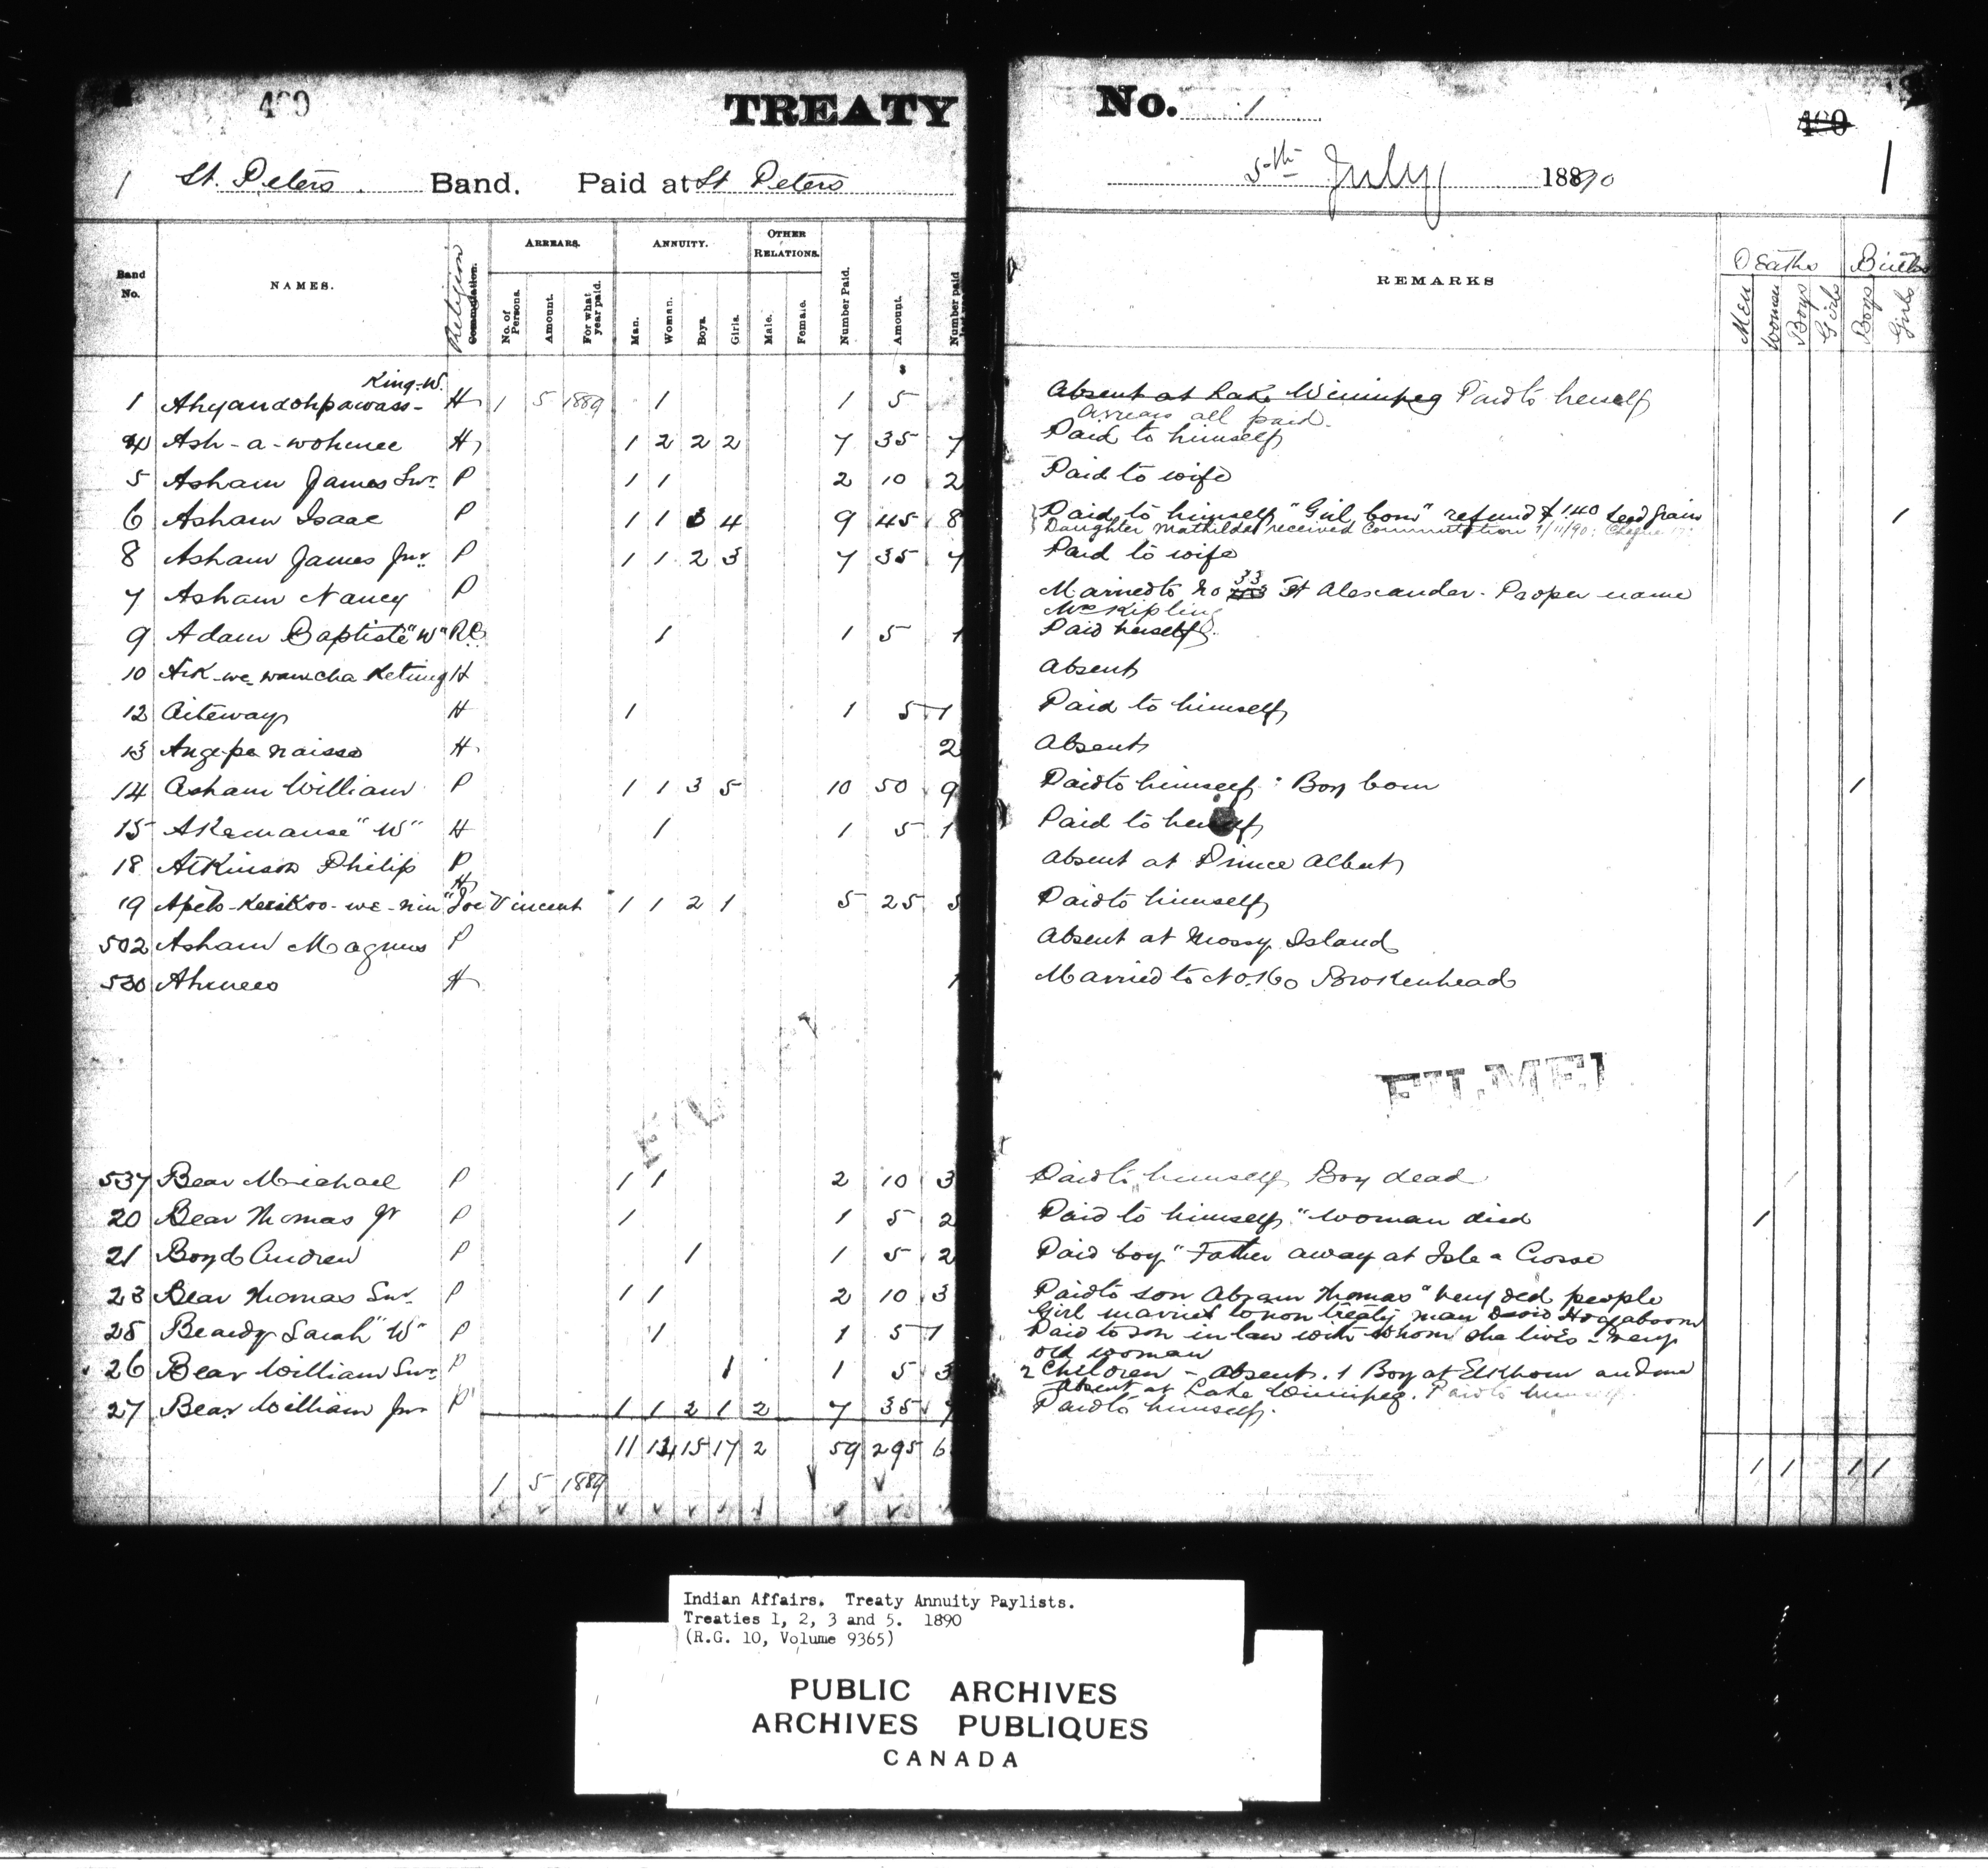 400 TREATY No. 1 400
1 St. Peters Band. Paid at St Peters 5th July 1890 1
Band No. NAMES. Religion Commutation. ARREARS. No. of Persons. Amount. For what year paid. ANNUITY. Man. Woman. Boys. Girls. OTHER RELATIONS. Male. Female. Number Paid. Amount. Number paid REMARKS Deaths Men Women Boys Girls Births Boys Girls
King-W.
1 Ahyandohpawass- H 1 5 1889 1 1 5 Absent at Lake Winnipeg Paid to herself
Arrears all paid.
4 Ash-a-wohmee H 1 2 2 2 7 35 7 Paid to himself
5 Asham James Snr. P 1 1 2 10 2 Paid to wife
6 Asham Isaac P 1 1 3 4 9 45 8 Paid to himself "Girl born" refund $1.40 Seed grain 1
Daughter Mathilda received Commutation 7/11/90. Cheque
8 Asham James Jnr. P 1 1 2 3 7 35 7 Paid to wife
7 Asham Nancy P Married to No 33 Ft Alexander. Proper name
Mrs Kipling
9 Adam Baptiste "W" RC 1 1 5 1 Paid herself
10 H Absent
12 Aiteway H 1 1 5 1 Paid to himself
13 Angepe naisse H 2 Absent
14 Asham William P 1 1 3 5 10 50 9 Paid to himself: Boy born 1
15 Akemanse "W" H 1 1 5 1 Paid to herself
18 Atkinson Philip P Absent at Prince Albert
19 Apeto-Keesikoo-we-nin "Joe Vincent" H 1 1 2 1 5 25 5 Paid to himself
502 Asham Magnus P Absent at Mossy Island
530 Ahmeeo H 1 Married to No. 160 Brokenhead
FILMED
537 Bear Michael P 1 1 2 10 3 Paid to himself Boy dead 1
20 Bear Thomas Jr P 1 1 5 2 Paid to himself. "Woman died 1
21 Boyd Andrew P 1 1 5 2 Paid boy "Father away at Isle a Crosse
23 Bear Thomas Snr. P 1 1 2 10 3 Paid to son Abram Thomas "Very old people
Girl married to non treaty man David Hogaboom
25 Beardy Sarah "W" P 1 1 5 1 Paid to son in law with whom she lives - Very
old woman
26 Bear William Snr. P 1 1 5 3 2 Children - Absent. 1 Boy at Elkhorn and one
Absent at Lake Winnipeg. Paid to himself.
27 Bear William Jnr P 1 1 2 1 2 7 35 7 Paid to himself.
11 14 15 17 2 59 295 6
1 5 1889 1 1 1 1
Indian Affairs. Treaty Annuity Paylists.
Treaties 1, 2, 3 and 5. 1890
(R.G. 10, Volume 9365)
PUBLIC ARCHIVES
ARCHIVES PUBLIQUES
CANADA